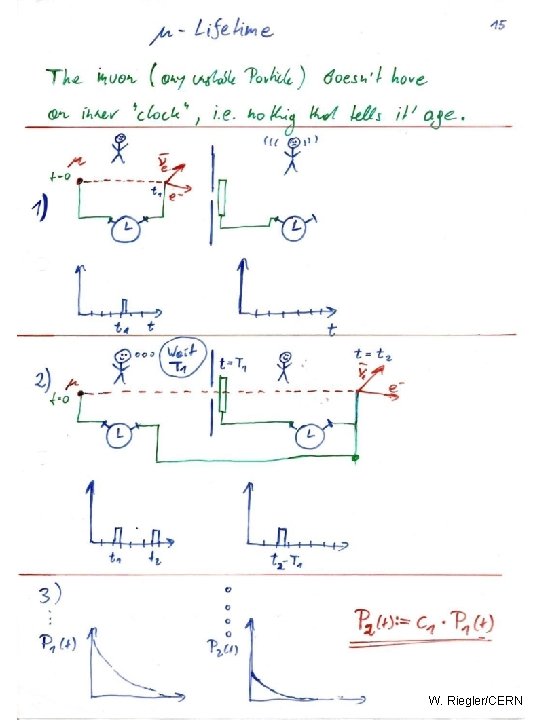 μ - Lifetime 15
The muon (any unstable Particle) doesn't have
an inner "clock", i.e. nothing that tells it' age.
μ ν̄e ((( )))
t=0 t1 e-
1) L L
t1 t t
... Wait T1 t=T1 t=t2
2) μ ν̄e e-
t=0
L L
t1 t2 t2-T1
3)
P1(t) P2(t) P2(t):= C1 · P1(t)
W. Riegler/CERN